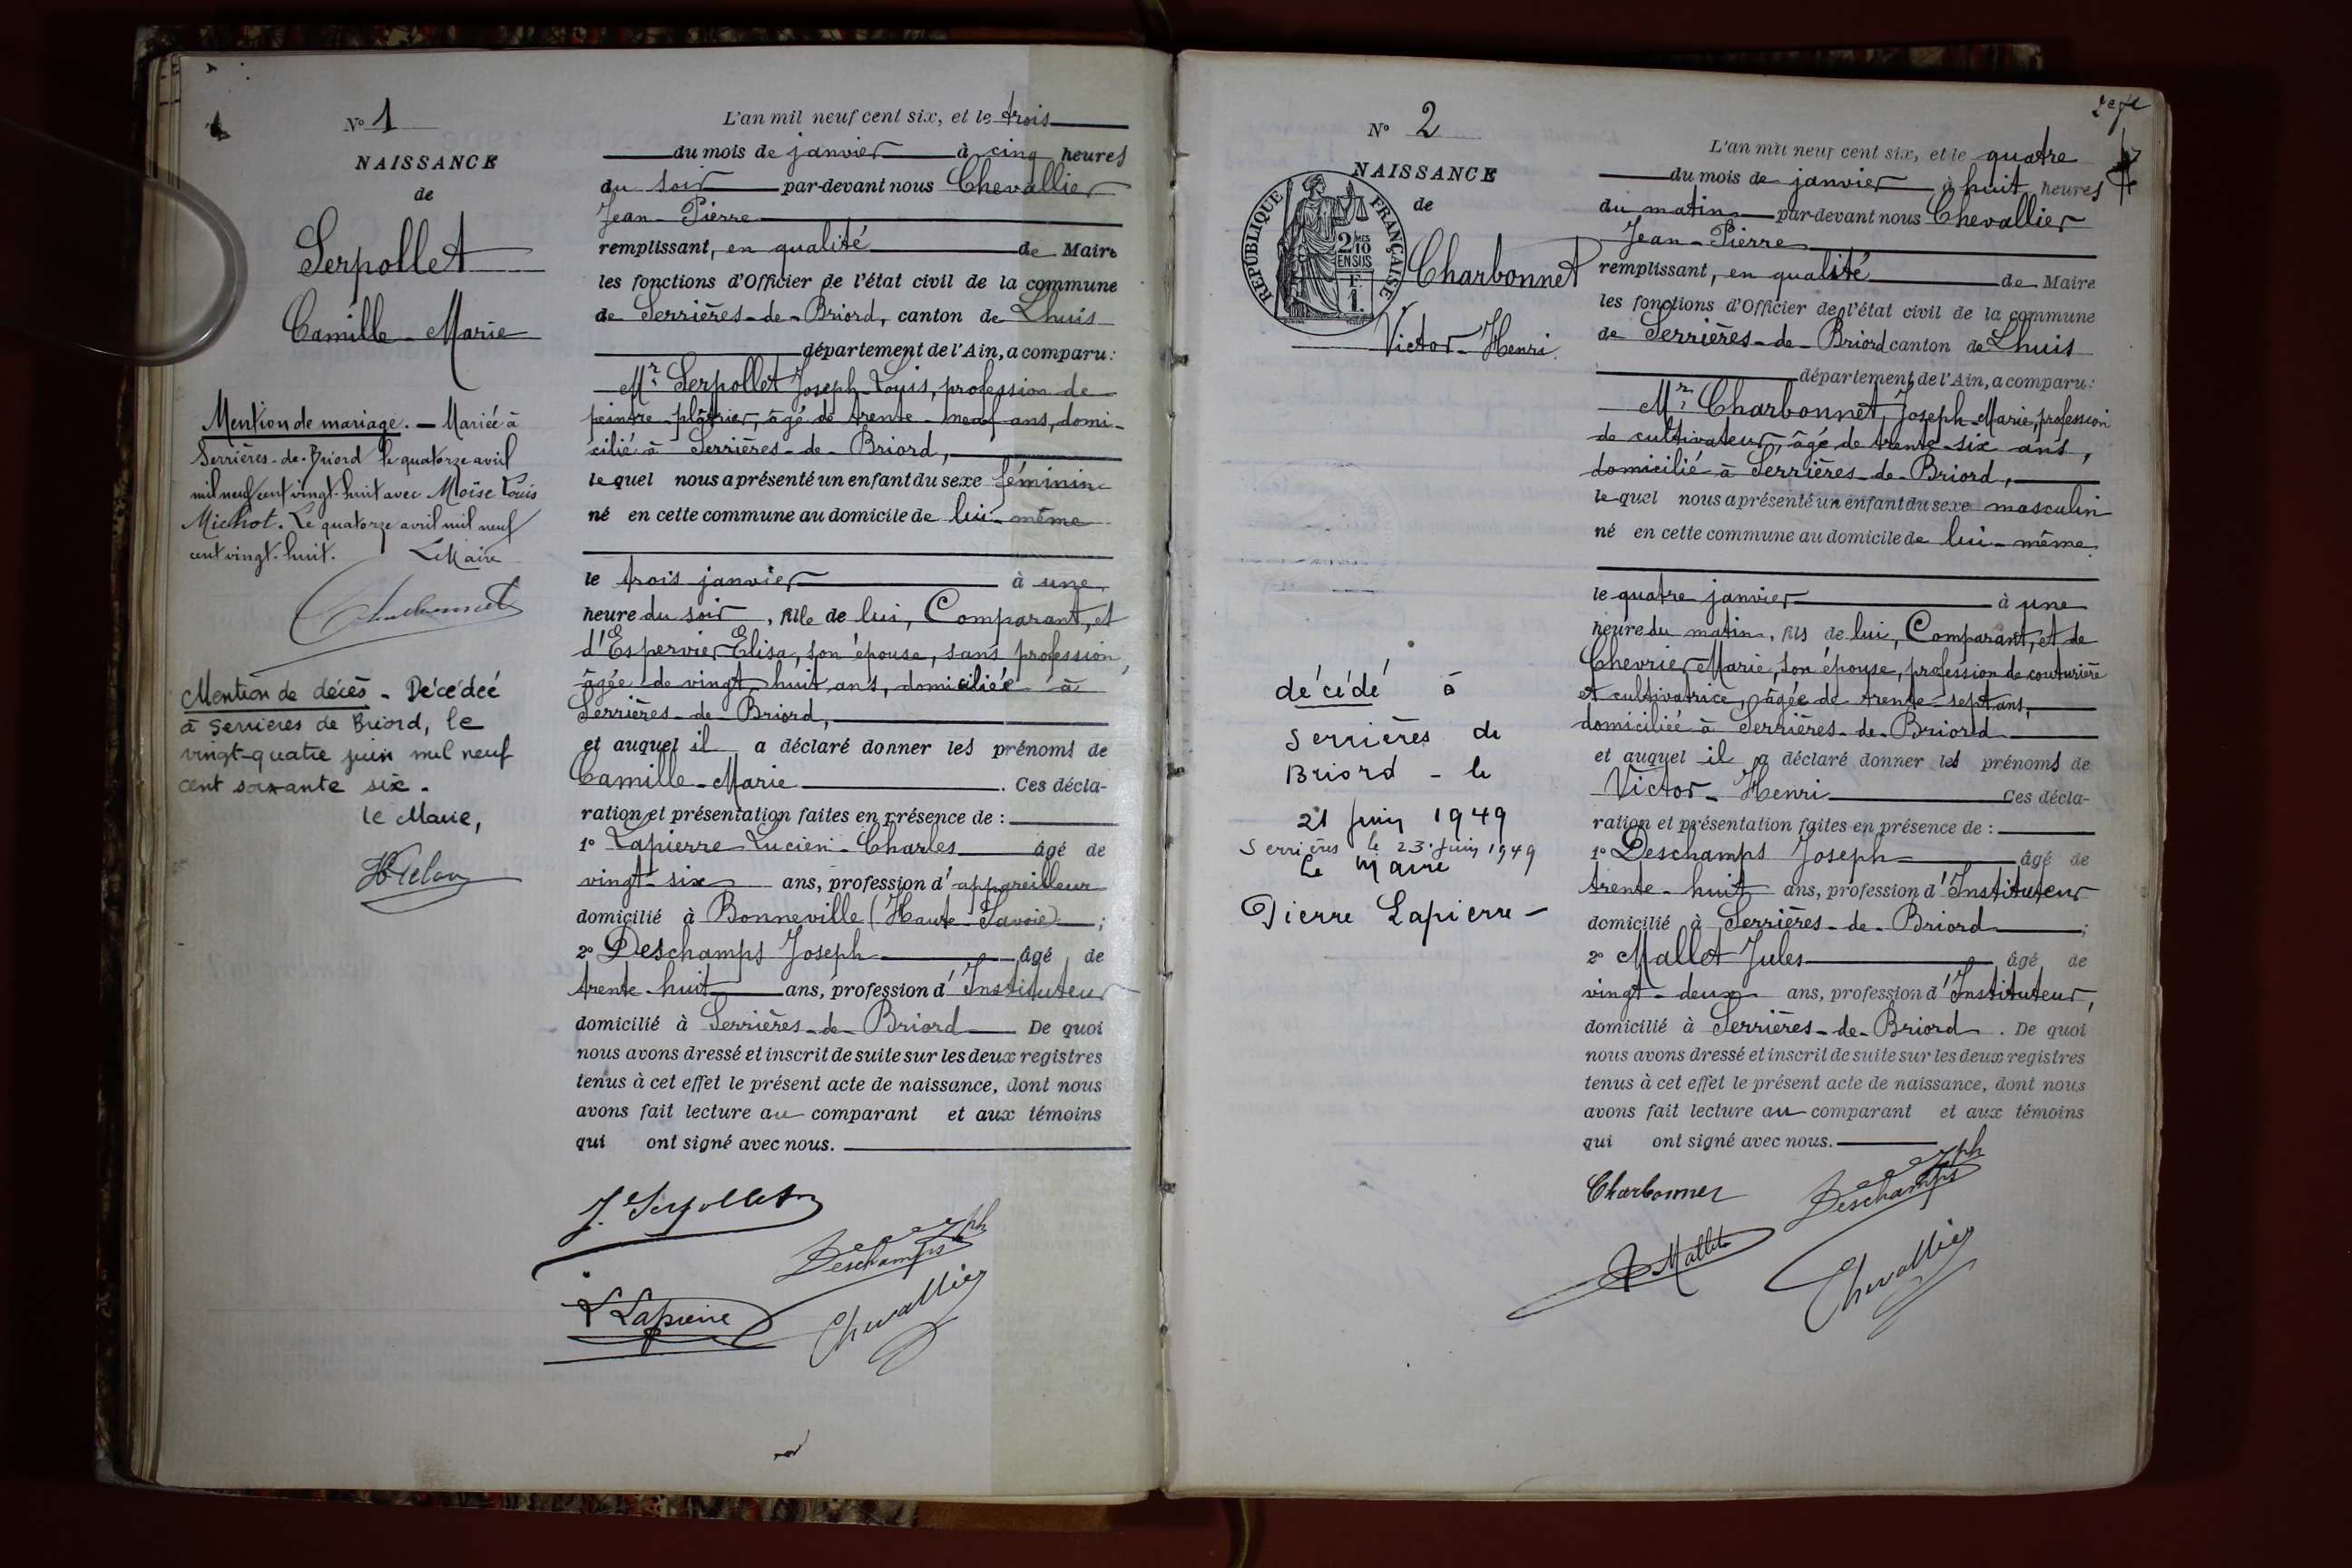 N° 1
NAISSANCE
de
Serpollet
Camille-Marie
Mention de mariage. — Mariée à
Serrières-de-Briord le quatorze avril
mil neuf cent vingt-huit avec Moïse Louis
Michot. Le quatorze avril mil neuf
cent vingt-huit. Le Maire
Charbonnet
Mention de décès - Décédée
à Serrieres de Briord, le
vingt-quatre juin mil neuf
cent soixante six.
le Maire,
L'an mil neuf cent six, et le trois
du mois de janvier à cinq heures
du soir par-devant nous Chevallier
Jean-Pierre
remplissant, en qualité de Maire
les fonctions d'Officier de l'état civil de la commune
de Serrières-de-Briord, canton de Lhuis
département de l'Ain, a comparu :
Mr Serpollet Joseph-Louis, profession de
peintre-plâtrier, âgé de trente-neuf ans, domi-
cilié à Serrières-de-Briord,
lequel nous a présenté un enfant du sexe féminin
né en cette commune au domicile de lui-même
le trois janvier à une
heure du soir, fille de lui, Comparant, et
d'Espervier Elisa, son épouse, sans profession,
âgée de vingt huit ans, domiciliée à
Serrières-de-Briord,
et auquel il a déclaré donner les prénoms de
Camille-Marie. Ces décla-
ration et présentation faites en présence de :
1° Lapierre Lucien-Charles âgé de
vingt-six ans, profession d'appareilleur
domicilié à Bonneville (Haute-Savoie) ;
2° Deschamps Joseph âgé de
trente-huit ans, profession d'Instituteur
domicilié à Serrières-de-Briord De quoi
nous avons dressé et inscrit de suite sur les deux registres
tenus à cet effet le présent acte de naissance, dont nous
avons fait lecture au comparant et aux témoins
qui ont signé avec nous.
J. Serpollet
Deschamps Jph
L Lapierre
Chevallier
N° 2
NAISSANCE
de
RÉPUBLIQUE FRANÇAISE
2 MES
10
EN SUS
F.
1.
Charbonnet
Victor-Henri
décédé à
Serrières de
Briord - le
21 juin 1949
Serrières le 23 juin 1949
Le Maire
Pierre Lapierre
L'an mil neuf cent six, et le quatre
du mois de janvier à huit heures
du matin par-devant nous Chevallier
Jean-Pierre
remplissant, en qualité de Maire
les fonctions d'Officier de l'état civil de la commune
de Serrières-de-Briord canton de Lhuis
département de l'Ain, a comparu :
Mr Charbonnet, Joseph-Marie, profession
de cultivateur, âgé de trente-six ans,
domicilié à Serrières-de-Briord,
lequel nous a présenté un enfant du sexe masculin
né en cette commune au domicile de lui-même
le quatre janvier à une
heure du matin, fils de lui, Comparant, et de
Chevrier Marie, son épouse, profession de couturière
et cultivatrice, âgée de trente-sept ans,
domiciliée à Serrières-de-Briord
et auquel il a déclaré donner les prénoms de
Victor-Henri Ces décla-
ration et présentation faites en présence de :
1° Deschamps Joseph âgé de
trente-huit ans, profession d'Instituteur
domicilié à Serrières-de-Briord ;
2° Mallet Jules âgé de
vingt-deux ans, profession d'Instituteur,
domicilié à Serrières-de-Briord. De quoi
nous avons dressé et inscrit de suite sur les deux registres
tenus à cet effet le présent acte de naissance, dont nous
avons fait lecture au comparant et aux témoins
qui ont signé avec nous.
Charbonnet
Deschamps Jph
Mallet
Chevallier